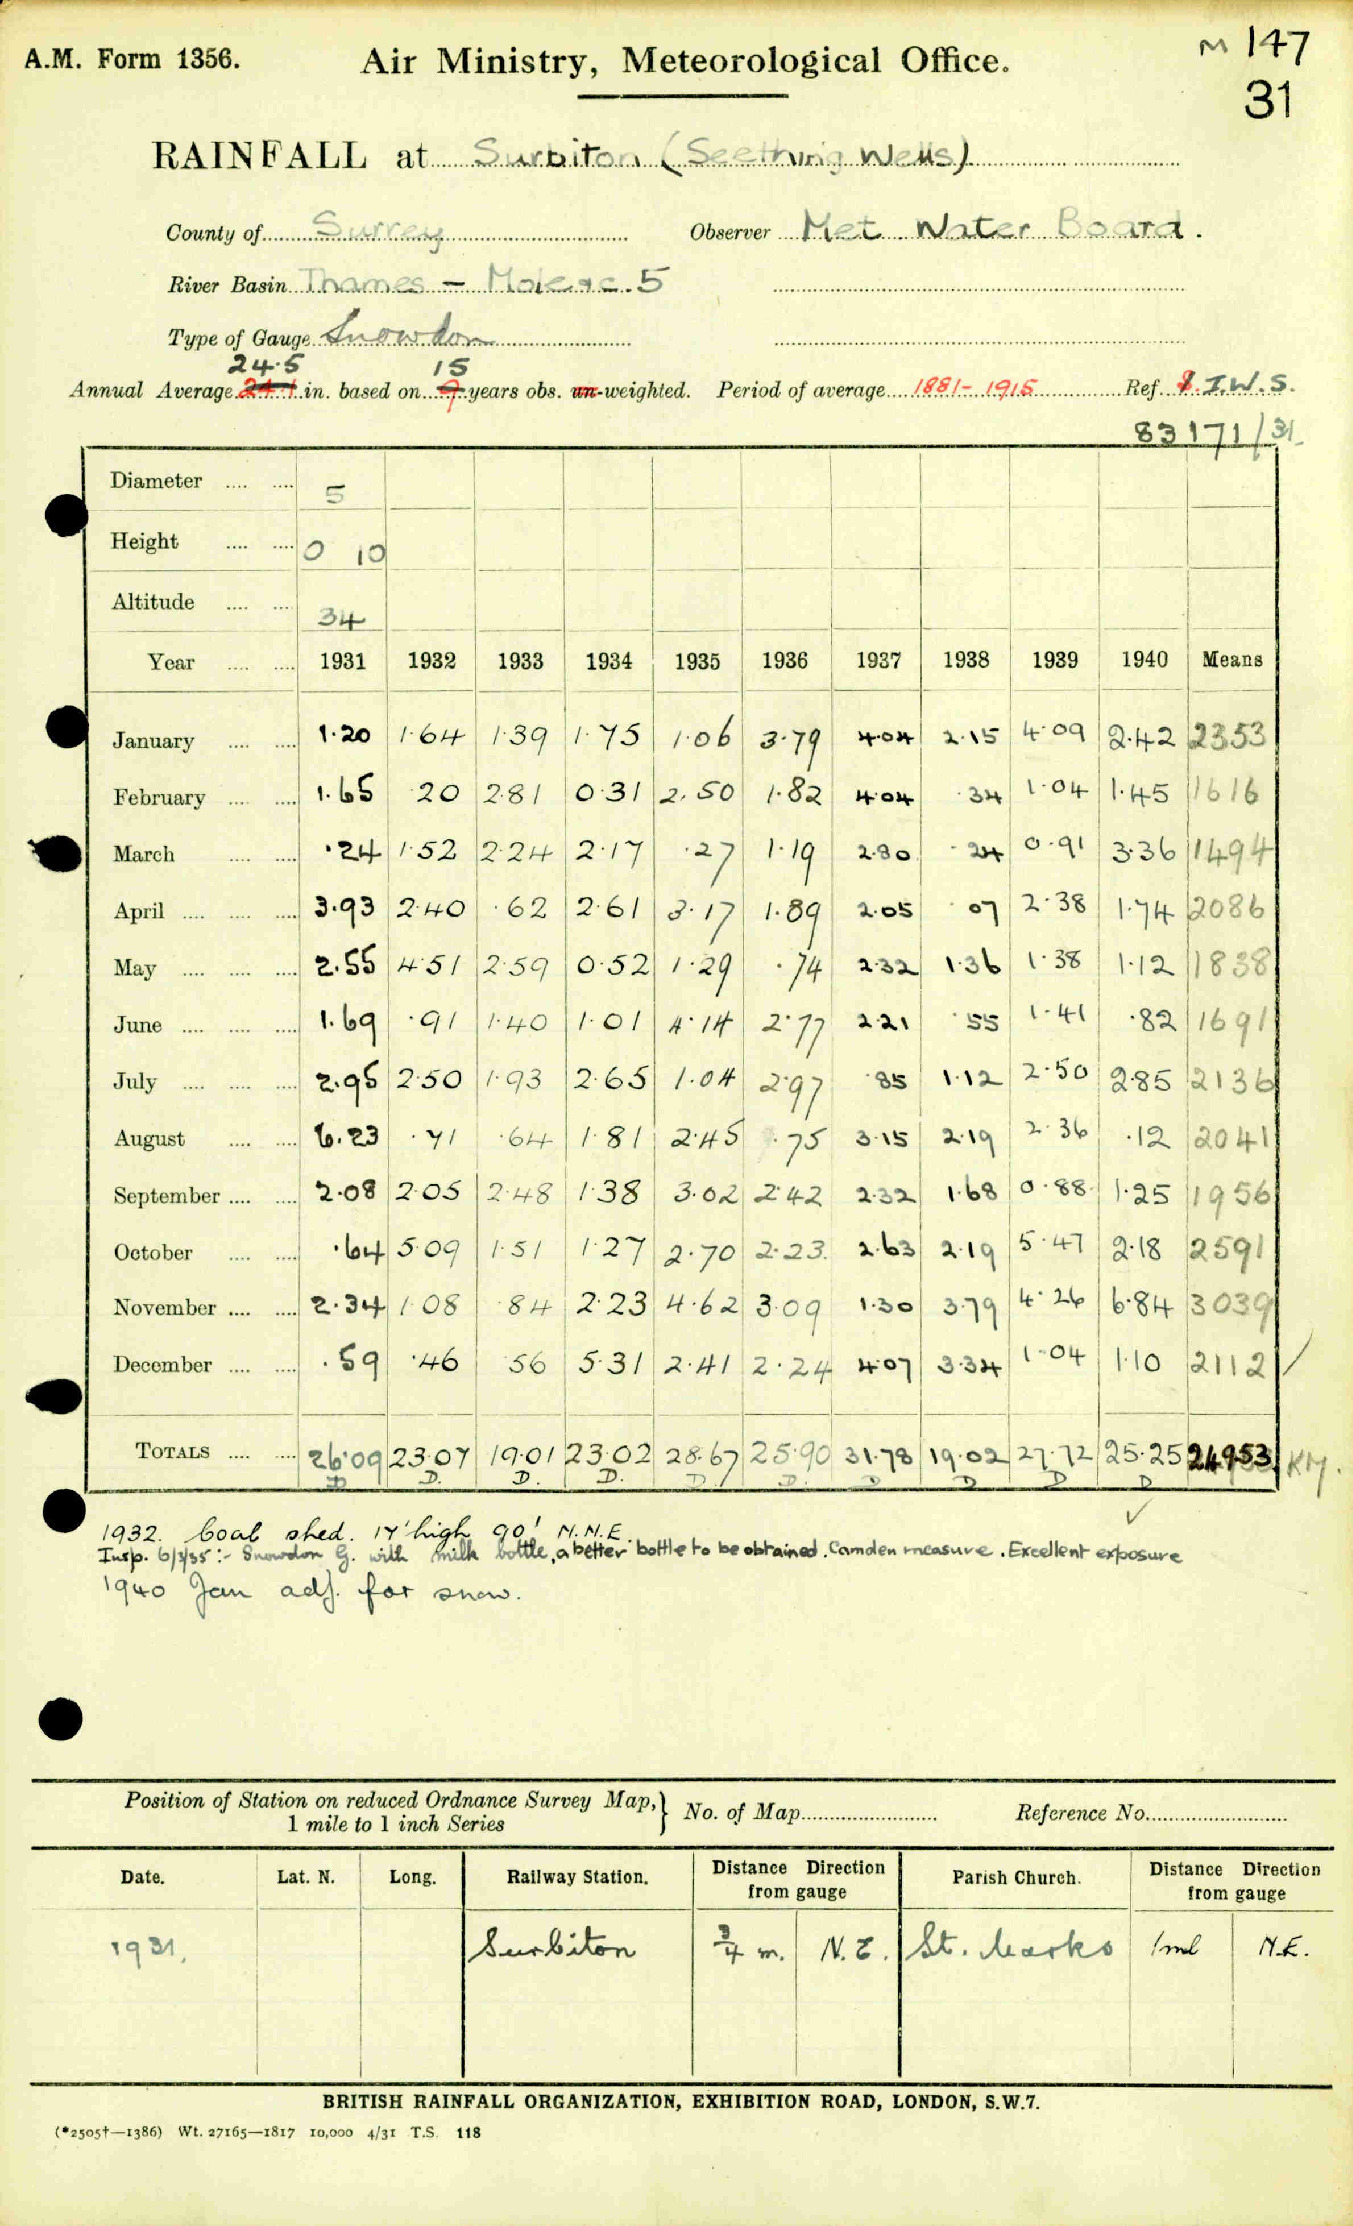 A.M. Form 1356. Air Ministry, Meteorological Office. M 147
31
RAINFALL at Surbiton (Seething Wells)
County of Surrey Observer Met Water Board.
River Basin Thames – Mole &c. 5
Type of Gauge Snowdon
24.5 15
Annual Average 24.1 in. based on 9 years obs. un-weighted. Period of average 1881–1915 Ref. 8. I.W.S.
83171/31
Diameter .... .... 5
Height .... .... 0 10
Altitude .... .... 34
Year .... .... 1931 1932 1933 1934 1935 1936 1937 1938 1939 1940 Means
January .... .... 1.20 1.64 1.39 1.75 1.06 3.79 4.04 2.15 4.09 2.42 2353
February .... .... 1.65 .20 2.81 0.31 2.50 1.82 4.04 .34 1.04 1.45 1616
March .... .... .24 1.52 2.24 2.17 .27 1.19 2.80 .24 0.91 3.36 1494
April .... .... .... 3.93 2.40 .62 2.61 3.17 1.89 2.05 .07 2.38 1.74 2086
May .... .... .... 2.55 4.51 2.59 0.52 1.29 .74 2.32 1.36 1.38 1.12 1838
June .... .... .... 1.69 .91 1.40 1.01 4.14 2.77 2.21 .55 1.41 .82 1691
July .... .... .... 2.95 2.50 1.93 2.65 1.04 2.97 .85 1.12 2.50 2.85 2136
August .... .... 6.23 .71 .64 1.81 2.45 .75 3.15 2.19 2.36 .12 2041
September .... .... 2.08 2.05 2.48 1.38 3.02 2.42 2.32 1.68 0.88 1.25 1956
October .... .... .64 5.09 1.51 1.27 2.70 2.23 2.63 2.19 5.47 2.18 2591
November .... .... 2.34 1.08 .84 2.23 4.62 3.09 1.30 3.79 4.26 6.84 3039
December .... .... .59 .46 .56 5.31 2.41 2.24 4.07 3.34 1.04 1.10 2112 /
TOTALS .... .... 26.09 23.07 19.01 23.02 28.67 25.90 31.78 19.02 27.72 25.25 24953 KM.
D D. D. D. D. D. D D D D
1932. Coal shed. 17' high 90' N.N.E.
Insp. 6/3/35:- Snowdon G. with milk bottle, a better bottle to be obtained. Camden measure. Excellent exposure
1940 Jan adj. for snow.
Position of Station on reduced Ordnance Survey Map, } No. of Map Reference No.
1 mile to 1 inch Series
Date. Lat. N. Long. Railway Station. Distance Direction from gauge Parish Church. Distance Direction from gauge
1931. Surbiton 3/4 m. N.E. St. Marks 1ml N.E.
BRITISH RAINFALL ORGANIZATION, EXHIBITION ROAD, LONDON, S.W.7.
(*2505†—1386) Wt. 27165—1817 10,000 4/31 T.S. 118